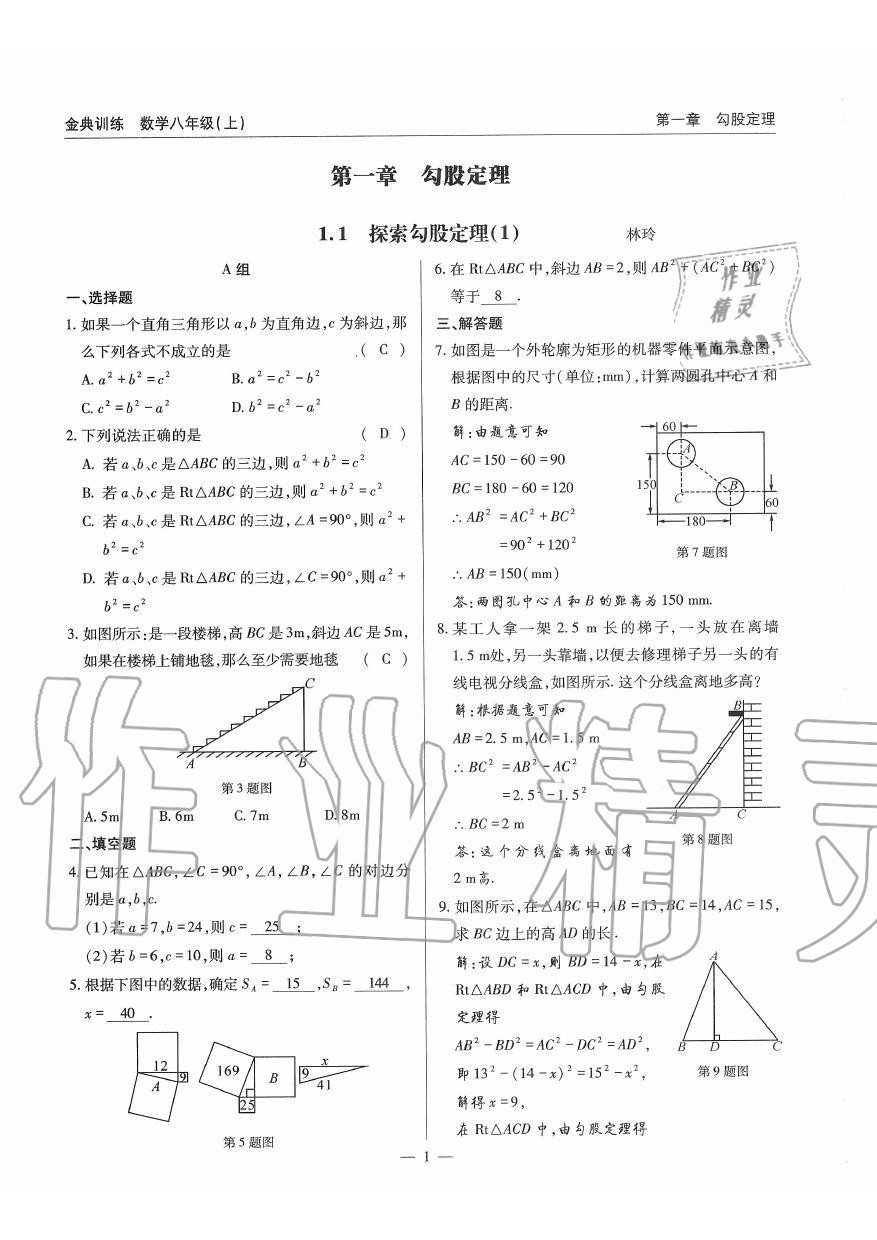 金典训练 数学八年级(上)
第一章 勾股定理
第一章 勾股定理
1.1 探索勾股定理(1)
林玲
A 组
一、选择题
1. 如果一个直角三角形以 a,b 为直角边,c 为斜边,那
么下列各式不成立的是 ( C )
A. a² + b² = c² B. a² = c² - b²
C. c² = b² - a² D. b² = c² - a²
2. 下列说法正确的是 ( D )
A. 若 a、b、c 是△ABC 的三边,则 a² + b² = c²
B. 若 a、b、c 是 Rt△ABC 的三边,则 a² + b² = c²
C. 若 a、b、c 是 Rt△ABC 的三边,∠A = 90°,则 a² +
b² = c²
D. 若 a、b、c 是 Rt△ABC 的三边,∠C = 90°,则 a² +
b² = c²
3. 如图所示:是一段楼梯,高 BC 是 3m,斜边 AC 是 5m,
如果在楼梯上铺地毯,那么至少需要地毯 ( C )
C
A B
第 3 题图
A. 5m B. 6m C. 7m D. 8m
二、填空题
4. 已知在△ABC,∠C = 90°,∠A,∠B,∠C 的对边分
别是 a,b,c.
(1)若 a = 7,b = 24,则 c = 25 ;
(2)若 b = 6,c = 10,则 a = 8 ;
5. 根据下图中的数据,确定 S_A = 15 ,S_B = 144 ,
x = 40 .
12 A 9
169 B 25
x 9 41
第 5 题图
6. 在 Rt△ABC 中,斜边 AB = 2,则 AB² + (AC² + BC²)
等于 8 .
三、解答题
7. 如图是一个外轮廓为矩形的机器零件平面示意图,
根据图中的尺寸(单位:mm),计算两圆孔中心 A 和
B 的距离.
解:由题意可知
AC = 150 - 60 = 90
BC = 180 - 60 = 120
∴ AB² = AC² + BC²
= 90² + 120²
∴ AB = 150(mm)
答:两圆孔中心 A 和 B 的距离为 150 mm.
60
A
150
C B
60
180
第 7 题图
8. 某工人拿一架 2.5 m 长的梯子,一头放在离墙
1.5 m处,另一头靠墙,以便去修理梯子另一头的有
线电视分线盒,如图所示. 这个分线盒离地多高?
解:根据题意可知
AB = 2.5 m,AC = 1.5 m
∴ BC² = AB² - AC²
= 2.5² - 1.5²
∴ BC = 2 m
答:这个分线盒离地面有
2 m高.
B
A C
第 8 题图
9. 如图所示,在△ABC 中,AB = 13,BC = 14,AC = 15,
求 BC 边上的高 AD 的长.
解:设 DC = x,则 BD = 14 - x,在
Rt△ABD 和 Rt△ACD 中,由勾股
定理得
AB² - BD² = AC² - DC² = AD²,
即 13² - (14 - x)² = 15² - x²,
解得 x = 9,
在 Rt△ACD 中,由勾股定理得
A
B D C
第 9 题图
— 1 —
作业
精灵
作业精灵